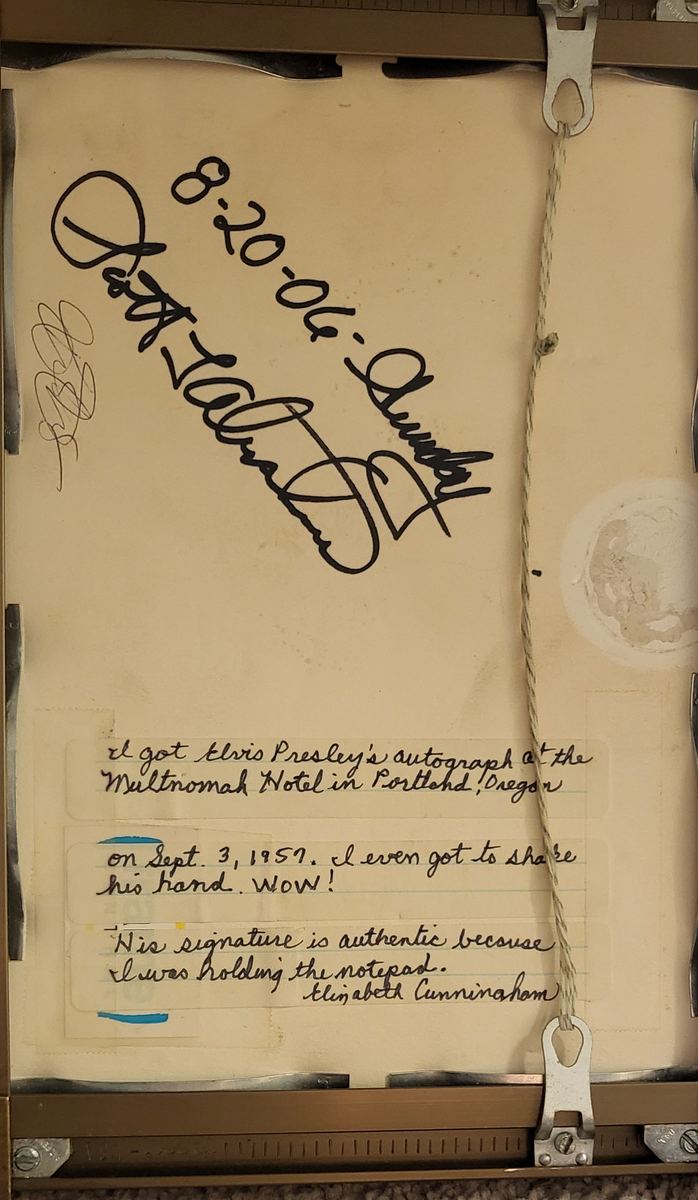 8-20-06- Sunday
Scott
I got Elvis Presley's autograph at the
Multnomah Hotel in Portland, Oregon
on Sept. 3, 1957. I even got to shake
his hand. WOW!
His signature is authentic because
I was holding the notepad.
Elizabeth Cunningham